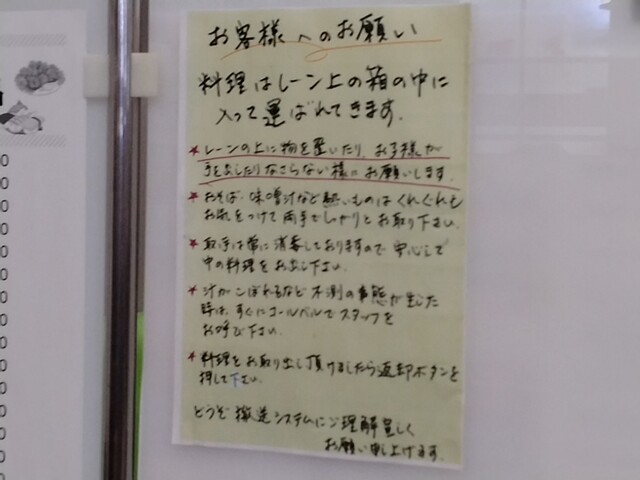 お客様へのお願い
料理はレーン上の箱の中に
入って運ばれてきます。
★レーンの上に物を置いたり、お子様が
手を出したりなさらない様にお願いします。
★おそば、味噌汁など熱いものはくれぐれも
お気をつけて両手でしっかりとお取り下さい。
★取手は常に消毒しておりますので安心して
中の料理をお出し下さい。
★汁がこぼれるなど不測の事態が生じた
時は、すぐにコールベルでスタッフを
お呼び下さい。
★料理をお取り出し頂けましたら返却ボタンを
押して下さい。
どうぞ搬送システムにご理解宜しく
お願い申し上げます。